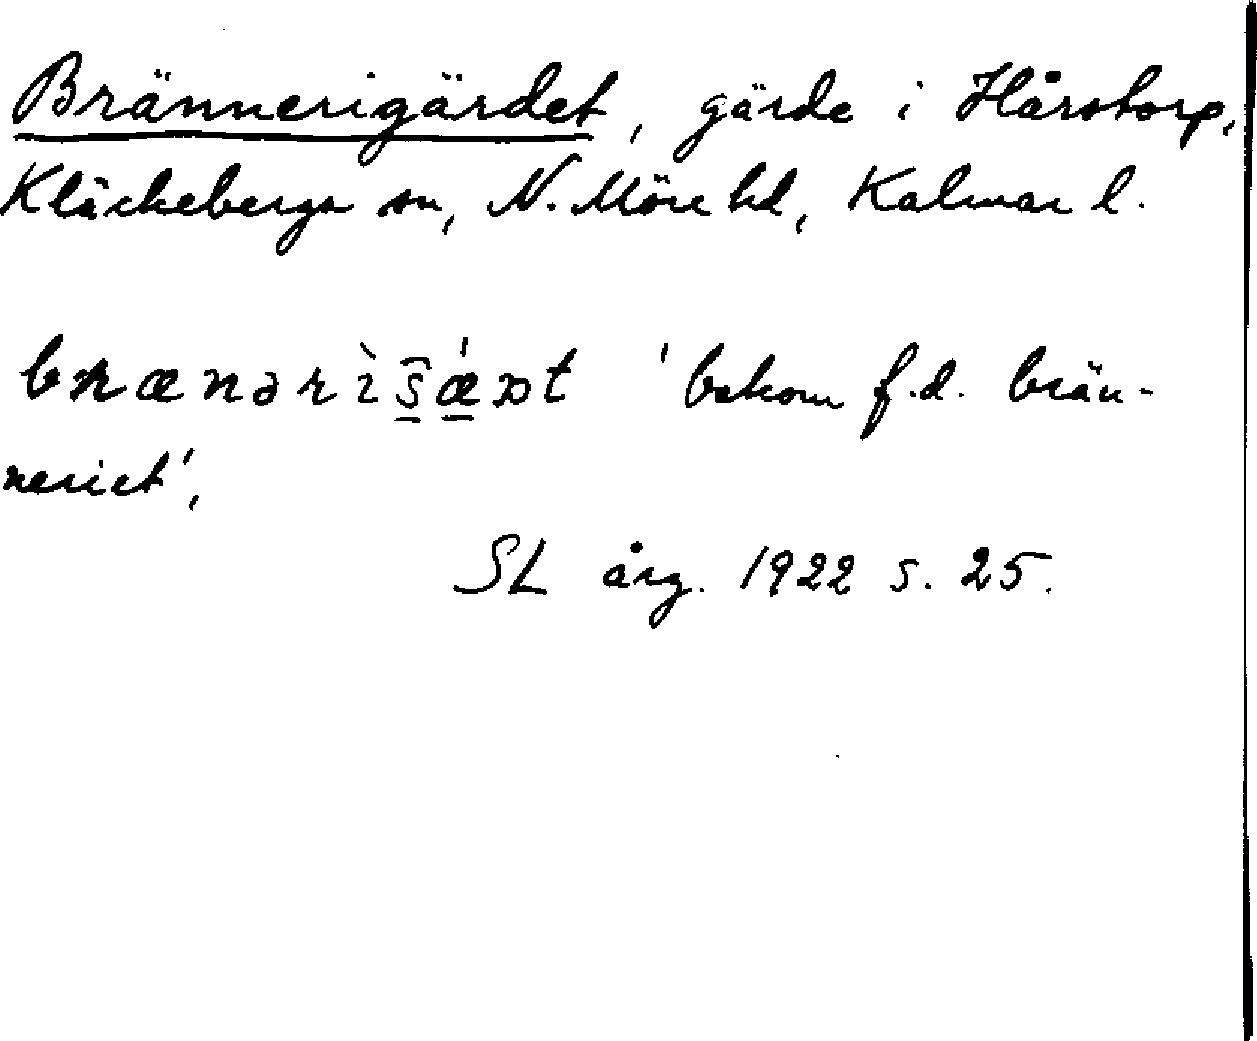 Brännerigärdet, gärde i Hårstorp,
Kläckeberga sn, N. Möre hd, Kalmar l.
brænərìs̯ǽɲt 'bakom f.d. brän-
neriet',
SL årg. 1922 s. 25.